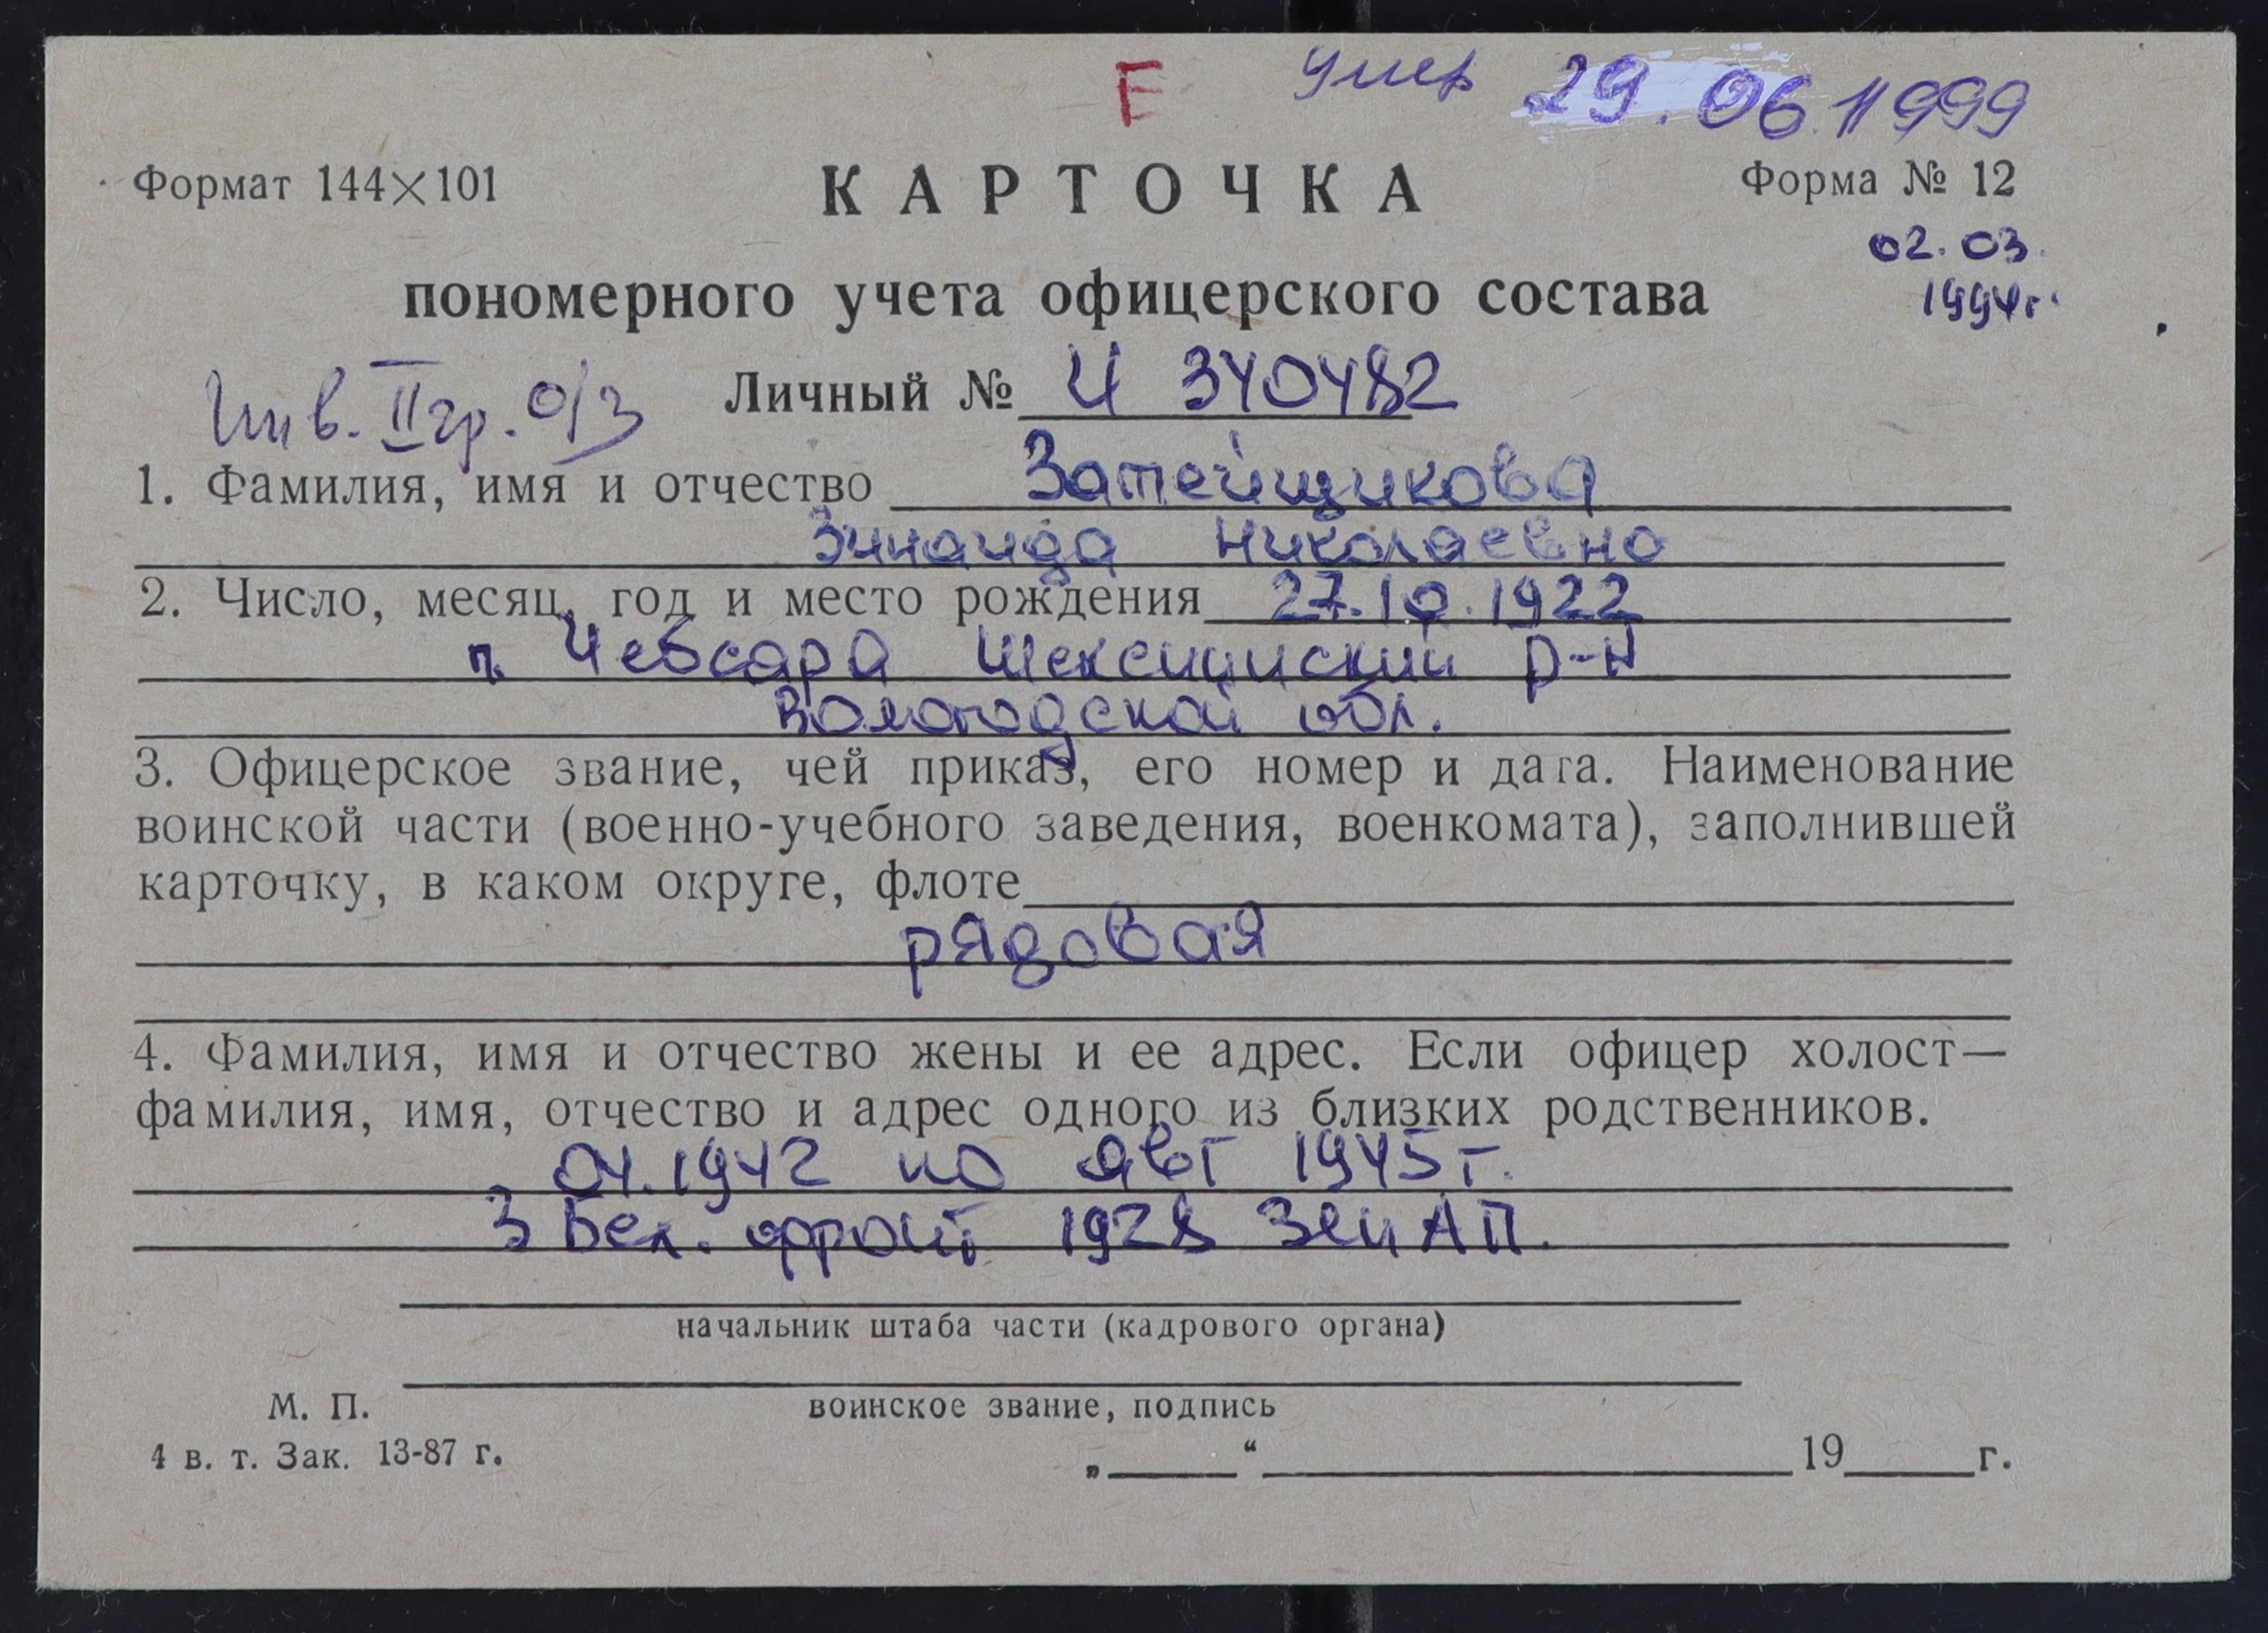 Е умер 29.06.1999
Формат 144×101 КАРТОЧКА Форма № 12
02.03.
1994г.
пономерного учета офицерского состава
Инв. II гр. о/з Личный № И 340482
1. Фамилия, имя и отчество Затейщикова
Зинаида Николаевна
2. Число, месяц, год и место рождения 27.10.1922
п. Чебсара Шекснинский р-н
Вологодской обл.
3. Офицерское звание, чей приказ, его номер и дата. Наименование
воинской части (военно-учебного заведения, военкомата), заполнившей
карточку, в каком округе, флоте
рядовая
4. Фамилия, имя и отчество жены и ее адрес. Если офицер холост—
фамилия, имя, отчество и адрес одного из близких родственников.
04.1942 по авг 1945г.
3 Бел. фронт 1928 ЗенАП.
начальник штаба части (кадрового органа)
воинское звание, подпись
М. П.
4 в. т. Зак. 13-87 г. „ “ 19 г.